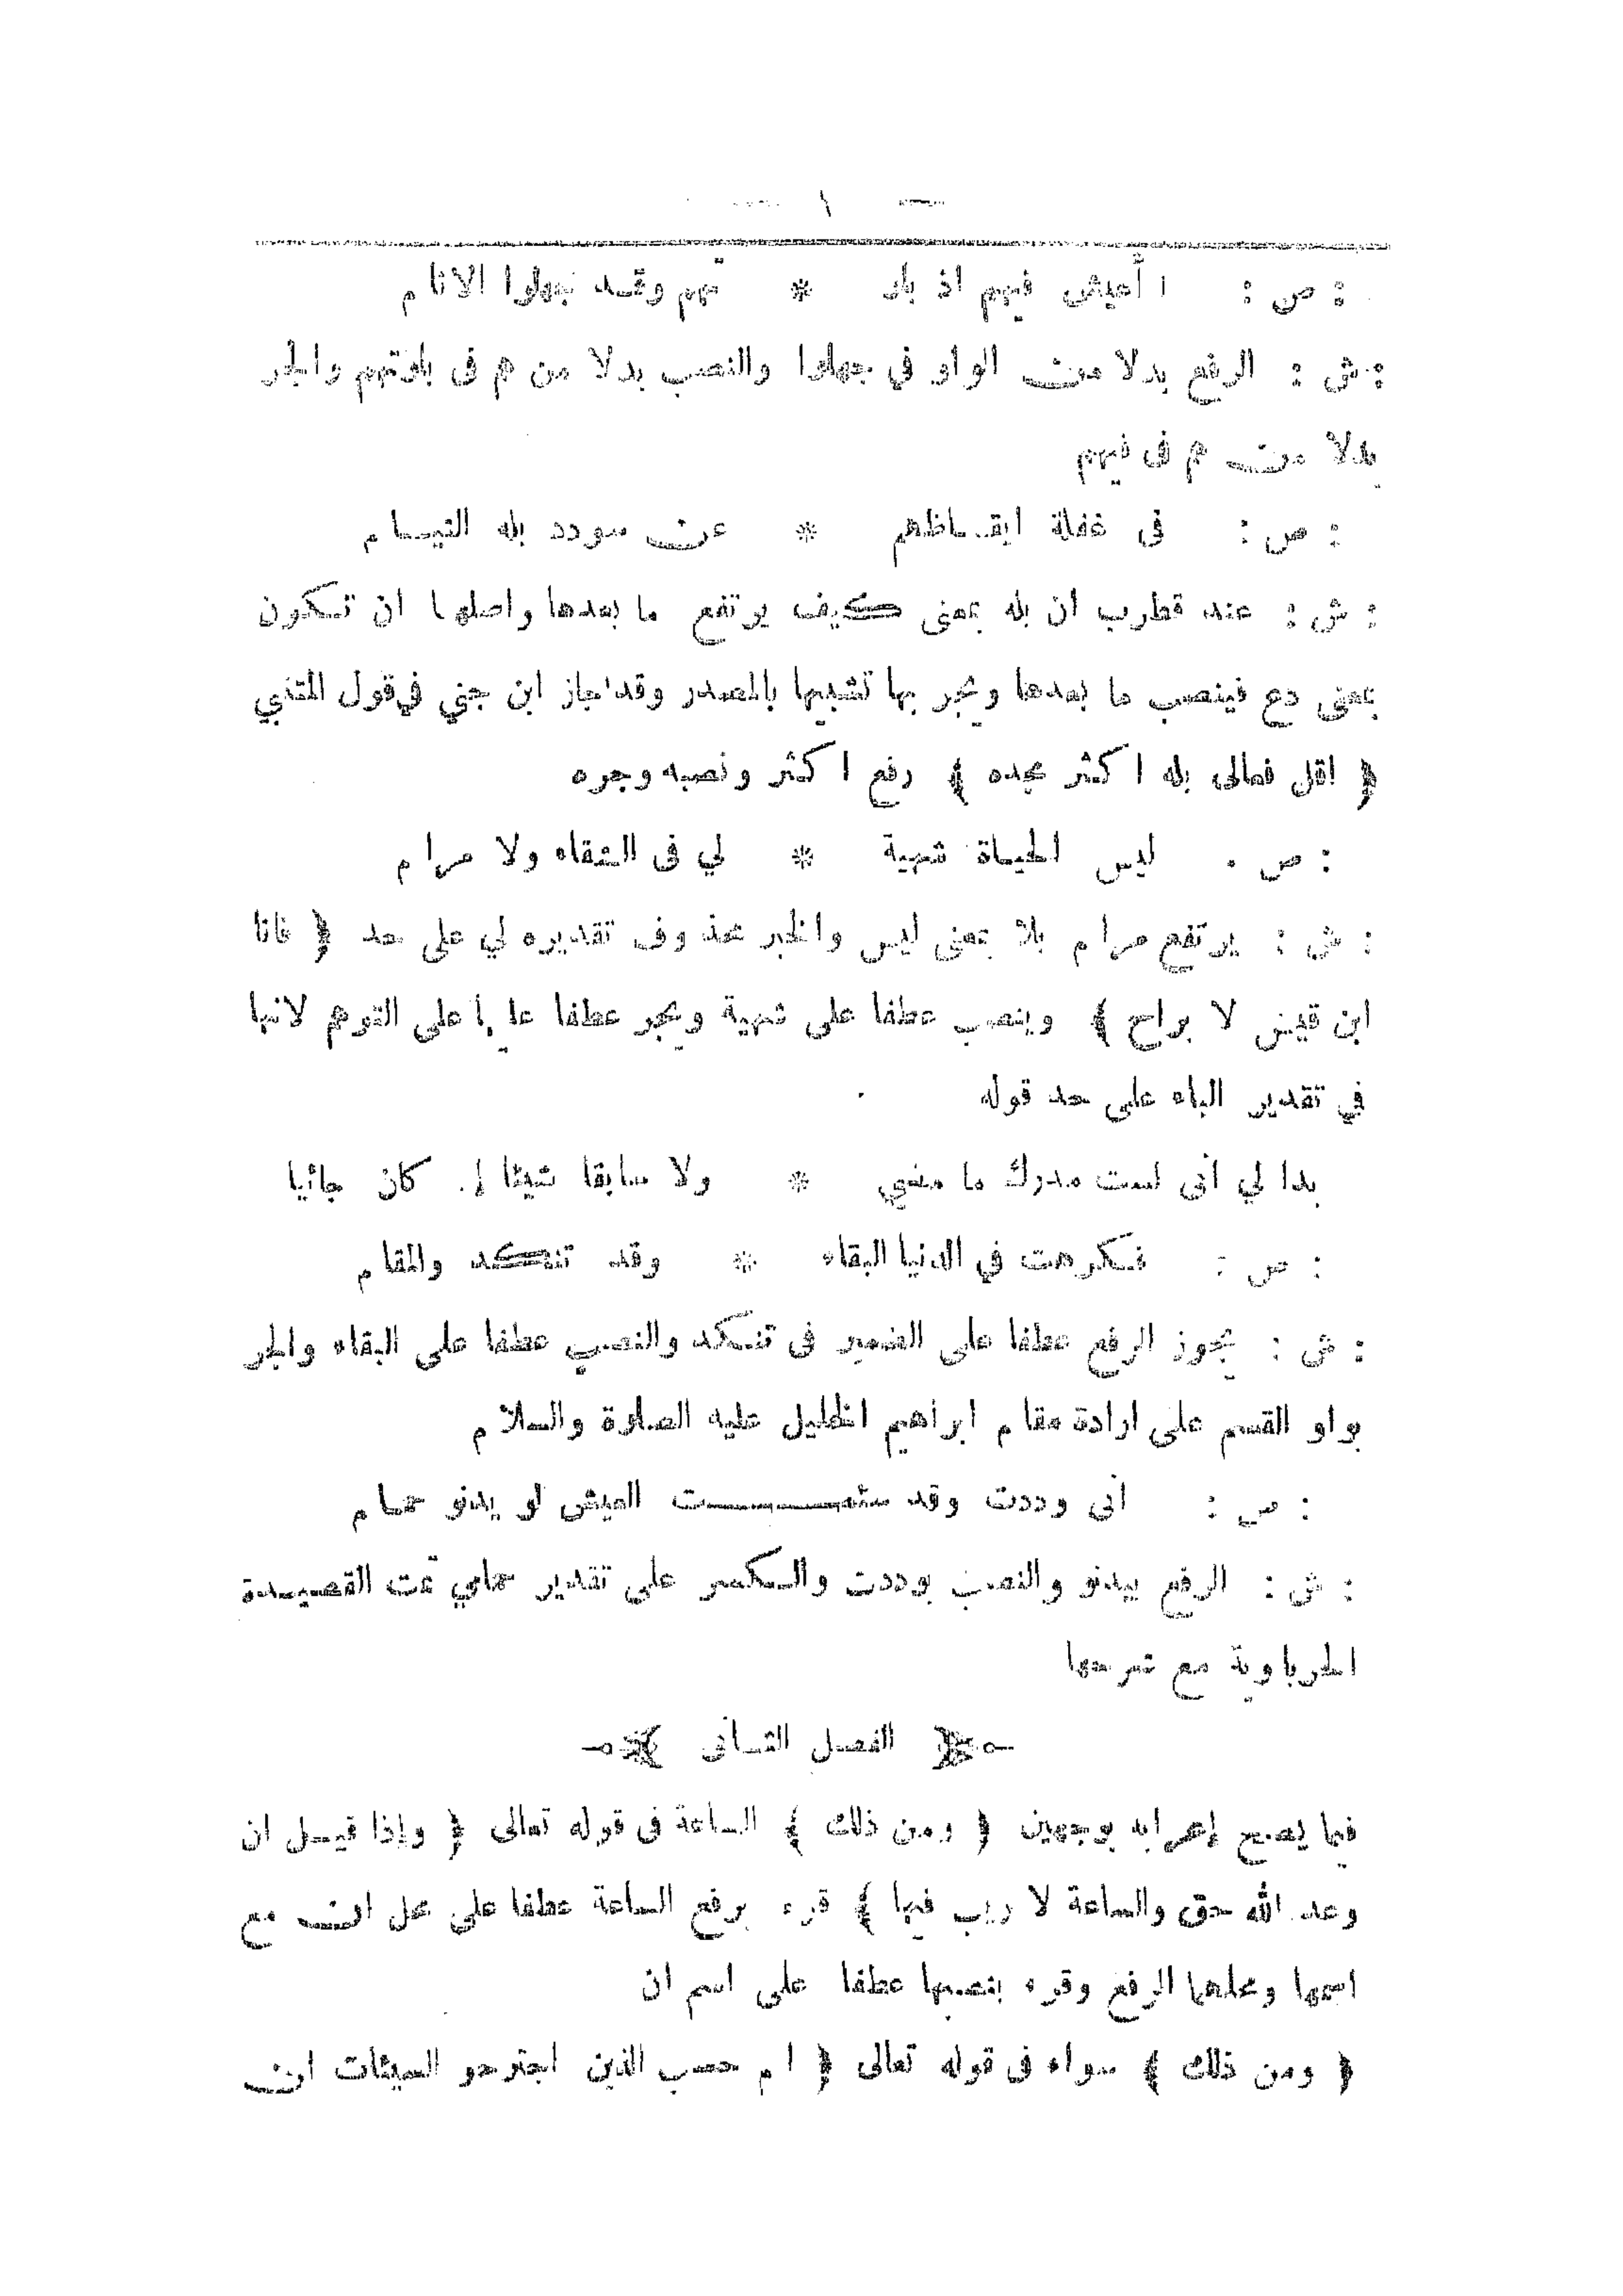 — ١ —
: ص : أأعيش فيهم اذ بلو * تهم وقد جهلوا الانام
: ش : الرفع بدلا من الواو في جهلوا والنصب بدلا من هم فى بلوتهم والجر
بدلا من هم فى فيهم
: ص : فى غفلة ايقاظهم * عن سودد بله النيام
: ش : عند قطرب ان بله بمعنى كيف يرتفع ما بعدها واصلها ان تكون
بمعنى دع فينصب ما بعدها ويجر بها تشبيها بالمصدر وقد اجاز ابن جني في قول المتنبي
﴿ اقل فعالى بله ا كثر مجده ﴾ رفع ا كثر ونصبه وجره
: ص . ليس الحياة شهية * لي فى الشقاء ولا مرام
: ش : يرتفع مرام بلا بمعنى ليس والخبر محذوف تقديره لي على حد ﴿ فانا
ابن قيس لا براح ﴾ وينصب عطفا على شهية ويجر عطفا عليها على التوهم لانها
في تقدير الباء على حد قوله
بدا لي أنى لست مدرك ما مضي * ولا سابقا شيئا إ. كان جائيا
: ص : فكرهت في الدنيا البقاء * وقد تنكد والمقام
: ش : يجوز الرفع عطفا على الضمير فى تنكد والنصب عطفا على البقاء والجر
بواو القسم على ارادة مقام ابراهيم الخليل عليه الصلوة والسلام
: ص : أنى وددت وقد سئمـــــت العيش لو يدنو حمام
: ش : الرفع بيدنو والنصب بوددت والكسر على تقدير حمامي تمت القصيدة
الحرباوية مع شرحها
الفصل الثانى
فيما يصح إعرابه بوجهين ﴿ ومن ذلك ﴾ الساعة فى قوله تعالى ﴿ وإذا قيل ان
وعد الله حق والساعة لا ريب فيها ﴾ قرء برفع الساعة عطفا على محل ان مع
اسمها ومحلهما الرفع وقرء بنصبها عطفا على اسم ان
﴿ ومن ذلك ﴾ سواء فى قوله تعالى ﴿ ا م حسب الذين اجترحو السيئات ان